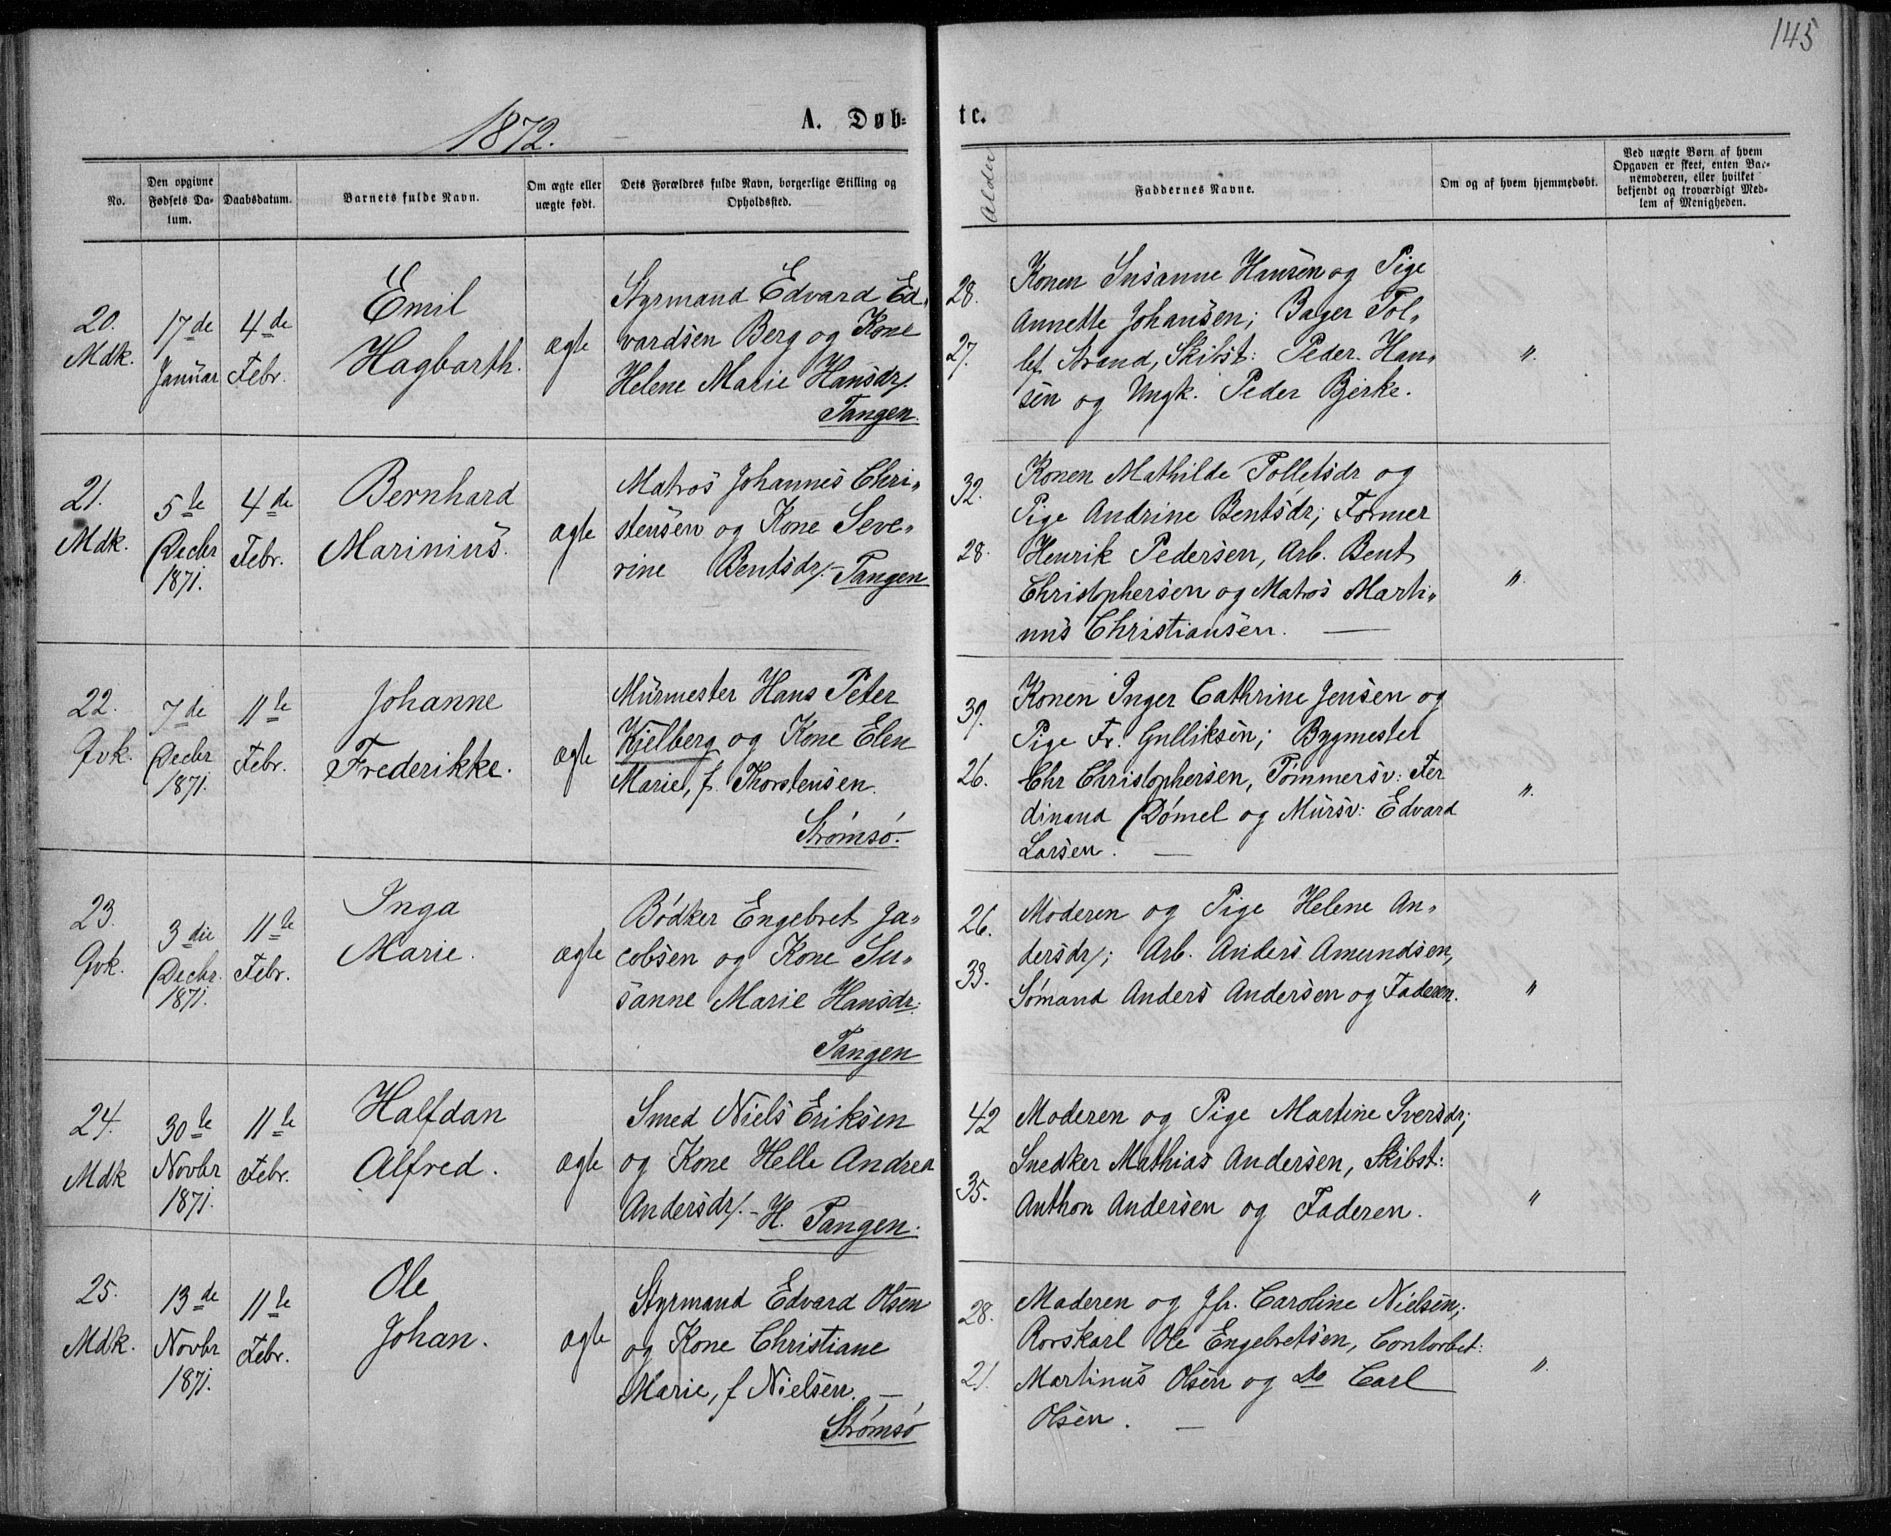 145
1872.
A. Døb-
te.
No.
Den opgivne Fødsels Datum.
Daabsdatum.
Barnets fulde Navn.
Om ægte eller uægte født.
Dets Forældres fulde Navn, borgerlige Stilling og Opholdssted.
Alder
Faddernes Navne.
Om og af hvem hjemmedøbt.
Ved uægte Børn af hvem
Opgaven er skeet, enten Bar-
nemoderen, eller hvilket
bekjendt og troværdigt Med-
lem af Menigheden.
20.
Mdk.
17de
Januar
4de
Febr.
Emil
Hagbarth.
ægte
Styrmand Edvard Ed-
vardsen Berg og Kone
Helene Marie Hansdr/
Tangen.
28.
27.
Konen Susanne Hansen og Pige
Annette Johansen; Bager Tol-
lef Strand, Skibst: Peder Han-
sen og Ungk. Peder Bjerke.
"
21.
Mdk.
5te
Decbr
1871.
4de
Febr.
Bernhard
Marinius.
ægte
Matros Johannes Chri-
stensen og Kone Seve-
rine Bentsdr/.- Tangen
32.
28.
Konen Mathilde Tollefsdr og
Pige Andrine Bentsdr; Former
Henrik Pedersen, Arb. Bent
Christophersen og Matros Marti-
nus Christiansen. —
"
22.
Qvk.
7de
Decbr
1871.
11te
Febr.
Johanne
Frederikke.
ægte
Murmester Hans Peter
Kjelberg og Kone Elen
Marie, f. Thorstensen.
Strømsø.
39.
26.
Konen Inger Cathrine Jensen og
Pige Fr. Gulliksen; Bygmester
Chr Christophersen, Tømmersv: Fer
dinand Dømel og Mursv: Edvard
Larsen. —
"
23.
Qvk.
3die
Decbr.
1871.
11te
Febr.
Inga
Marie.
ægte
Bødker Engebret Ja-
cobsen og Kone Su-
sanne Marie Hansdr.
Tangen
26.
33.
Moderen og Pige Helene An-
dersdr/; Arb. Anders Amundsen,
Sømand Anders Andersen og Faderen.
"
24.
Mdk
30te
Novbr
1871.
11te
Febr.
Halfdan
Alfred.
ægte
Smed Niels Eriksen
og Kone Helle Andrea
Andersdr/.- H. Tangen.
42
35.
Moderen og Pige Martine Iversdr;
Snedker Mathias Andersen, Skibst:
Anthon Andersen og Faderen.
"
25.
Mdk.
13de
Novbr
1871.
11te
Febr.
Ole
Johan.
ægte
Styrmand Edvard Olsen
og Kone Christiane
Marie, f Nielsen. —
Strømsø
28.
21.
Moderen og Jfr. Caroline Nielsen;
Rorskarl Ole Engebretsen, Contorbet:
Martinus Olsen og Do Carl
Olsen. —
"